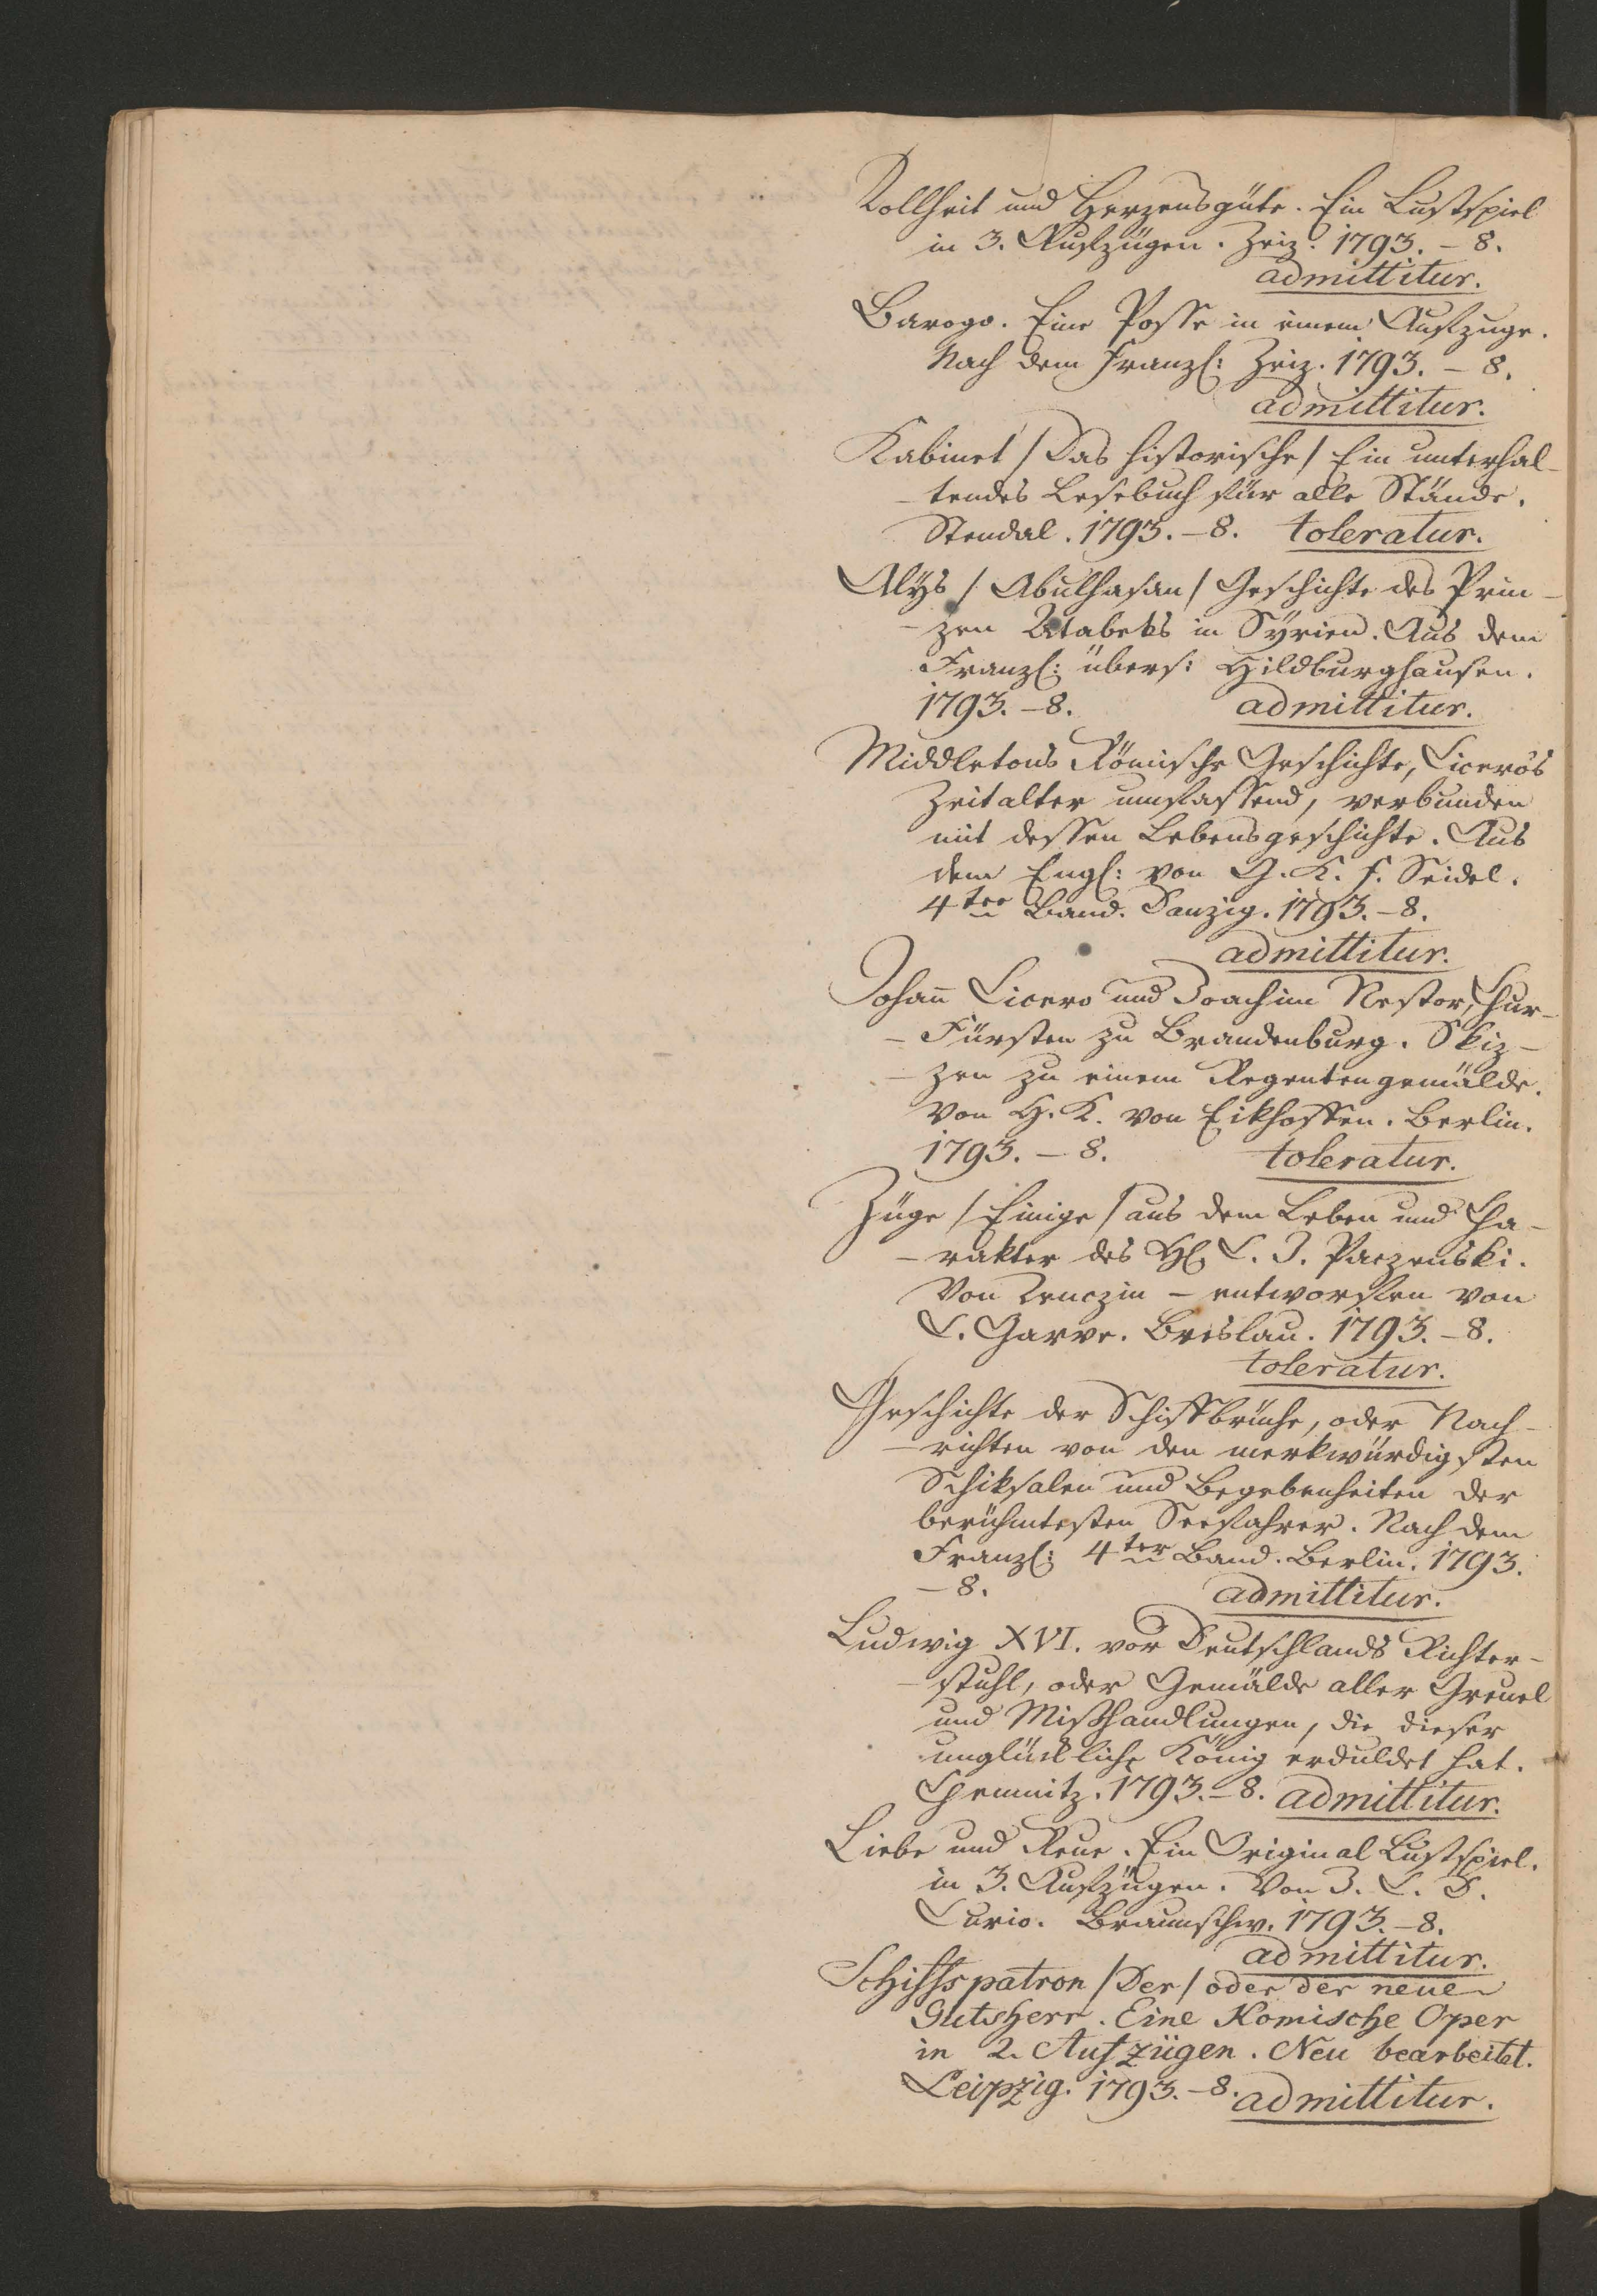 Tollheit und Herzensgüte. Ein Lustspiel
in 3. Aufzügen. Zeiz. 1793. – 8.
admittitur.
Barogo. Eine Posse in einem Aufzuge.
Nach dem Franzs: Zeiz. 1793. – 8.
admittitur.
Kabinet / Das historische / Ein unterhal-
-tendes Lesebuch für alle Stände.
Stendal. 1793. – 8. toleratur.
Alys / Abulhasan / Geschichte des Prin-
-zen Atabeks in Syrien. Aus dem
Franzs: übers: Hildburghausen.
1793. – 8. admittitur.
Middletons Römische Geschichte, Cicero's
Zeitalter umfassend, verbunden
mit dessen Lebensgeschichte. Aus
dem Engs: von G. K. F. Seidel.
4ter Band. Danzig. 1793. – 8.
admittitur.
Johañ Cicero und Joachim Nestor, Chur-
-Fürsten zu Brandenburg. Skiz-
-zen zu einem Regentengemälde.
Von H. K. von Eikhoffen. Berlin.
1793. – 8. toleratur.
Züge / Einige / aus dem Leben und Cha-
-rakter des H C. J. Paczenski.
Von Tenczin – entworfen von
C. Garve. Breslau. 1793. – 8.
toleratur.
Geschichte der Schiffbrüche, oder Nach-
-richten von den merkwürdigsten
Schiksalen und Begebenheiten der
berühmtesten Seefahrer. Nach dem
Franzs: 4ter Band. Berlin. 1793.
– 8. admittitur.
Ludwig XVI. vor Deutschlands Richter-
-stuhl, oder Gemälde aller Greuel
und Mißhandlungen, die dieser
unglückliche König erduldet hat.
Chemnitz. 1793. – 8. admittitur.
Liebe und Reue. Ein Original Lustspiel.
in 3. Aufzügen. Von J. C. D.
Curio. Braunschw. 1793. – 8.
admittitur.
Schiffspatron / Der / oder der neue
Gutsherr. Eine Komische Oper
in 2. Aufzügen. Neu bearbeitet.
Leipzig. 1793. – 8. admittitur.